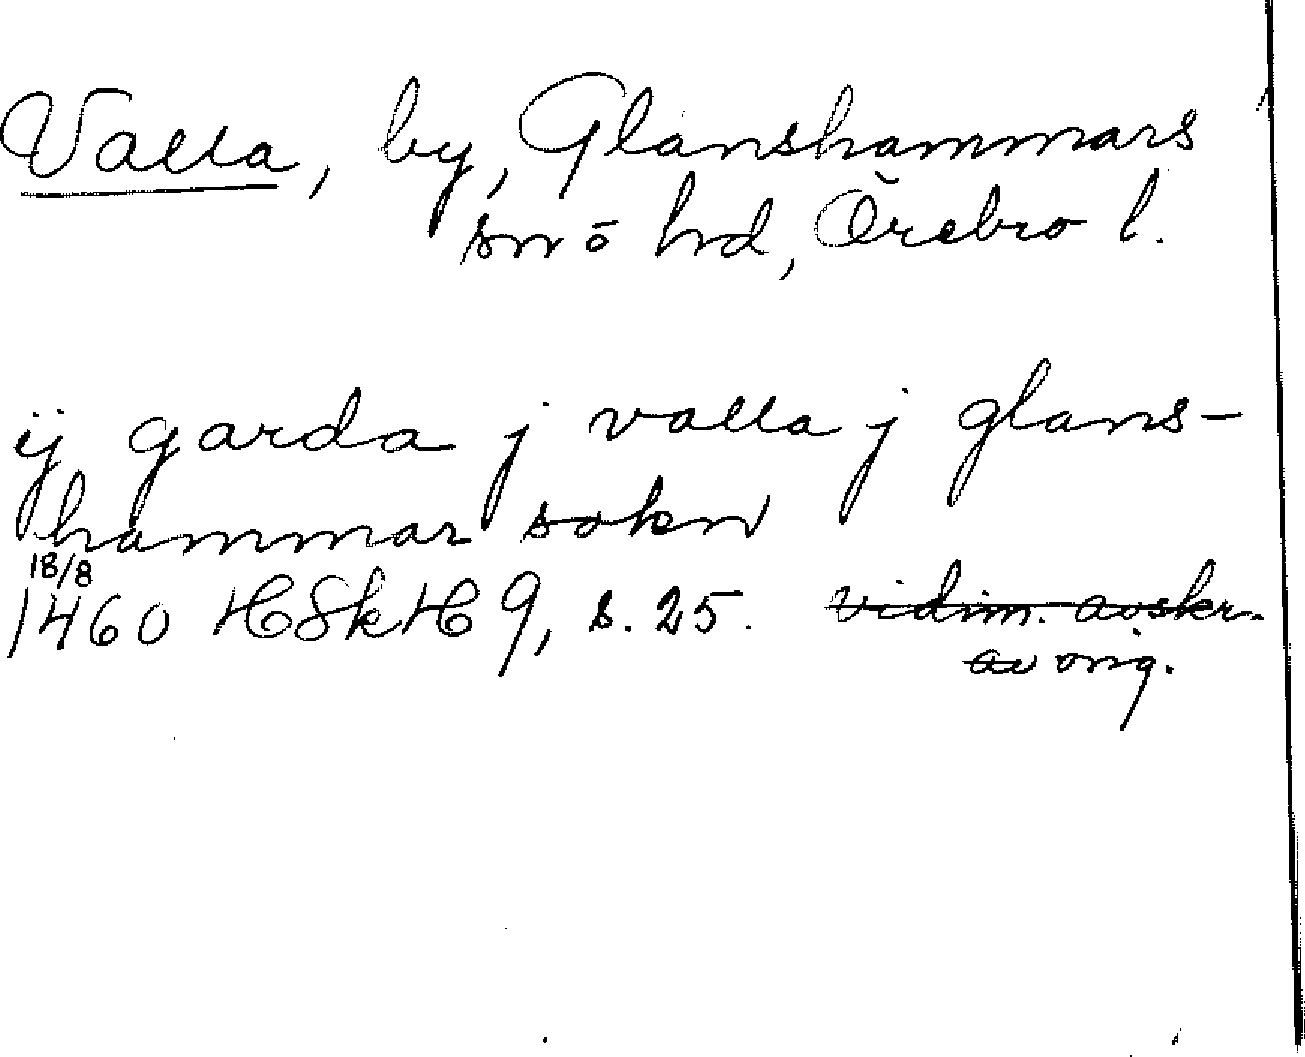 Valla, by, Glanshammars
sn o hd, Örebro l.
ij garda j valla j glans-
hammar sokn
18/8
1460 HSkH 9, s. 25. vidim. avskr.
av orig.